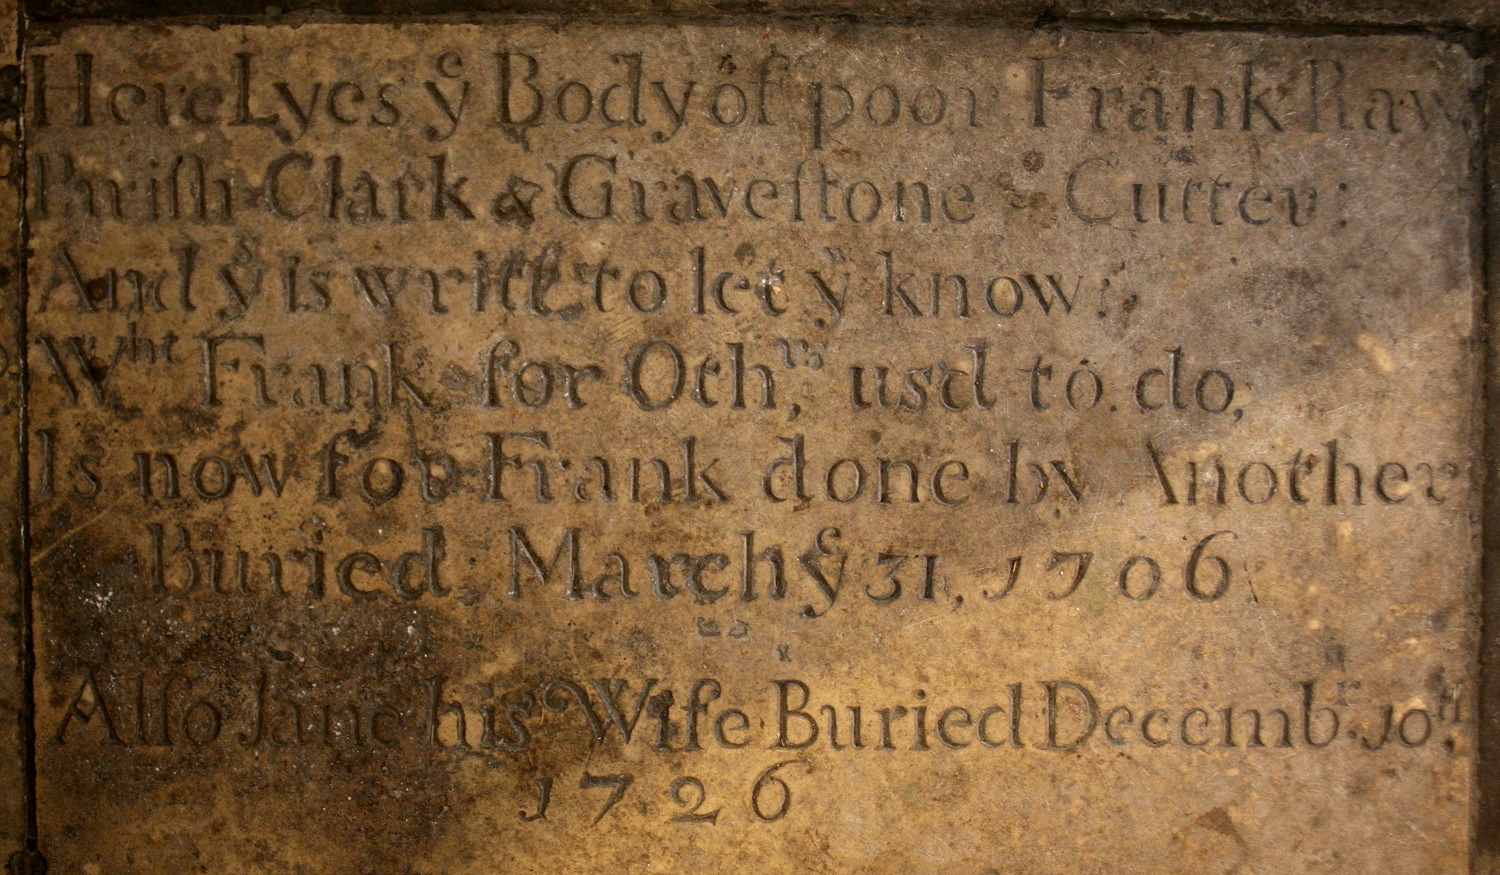 Here Lyes yᵉ Body of poor Frank Raw
Pariſh Clark & Graveſtone Cutter:
And yˢ is writt to let yᵘ know:
Wʰᵗ Frank for Othʳˢ, usd to do,
Is now for Frank done by Another
Buried March yᵉ 31, 1706
Alſo Jane his Wife Buried Decembʳ. 10ᵗʰ
1726